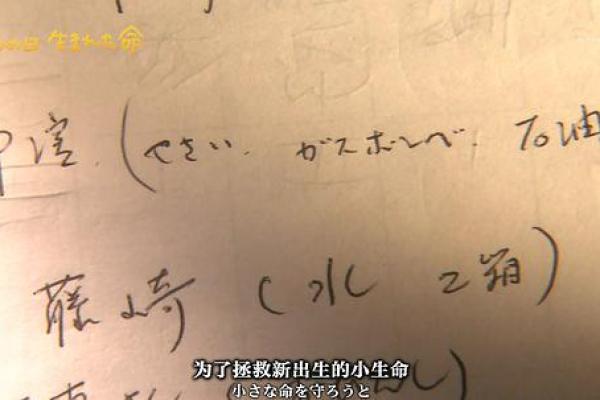 の日 生まれた命
(やさい、ガスボンベ、石油
藤崎 (水 2箱)
为了拯救新出生的小生命
小さな命を守ろうと